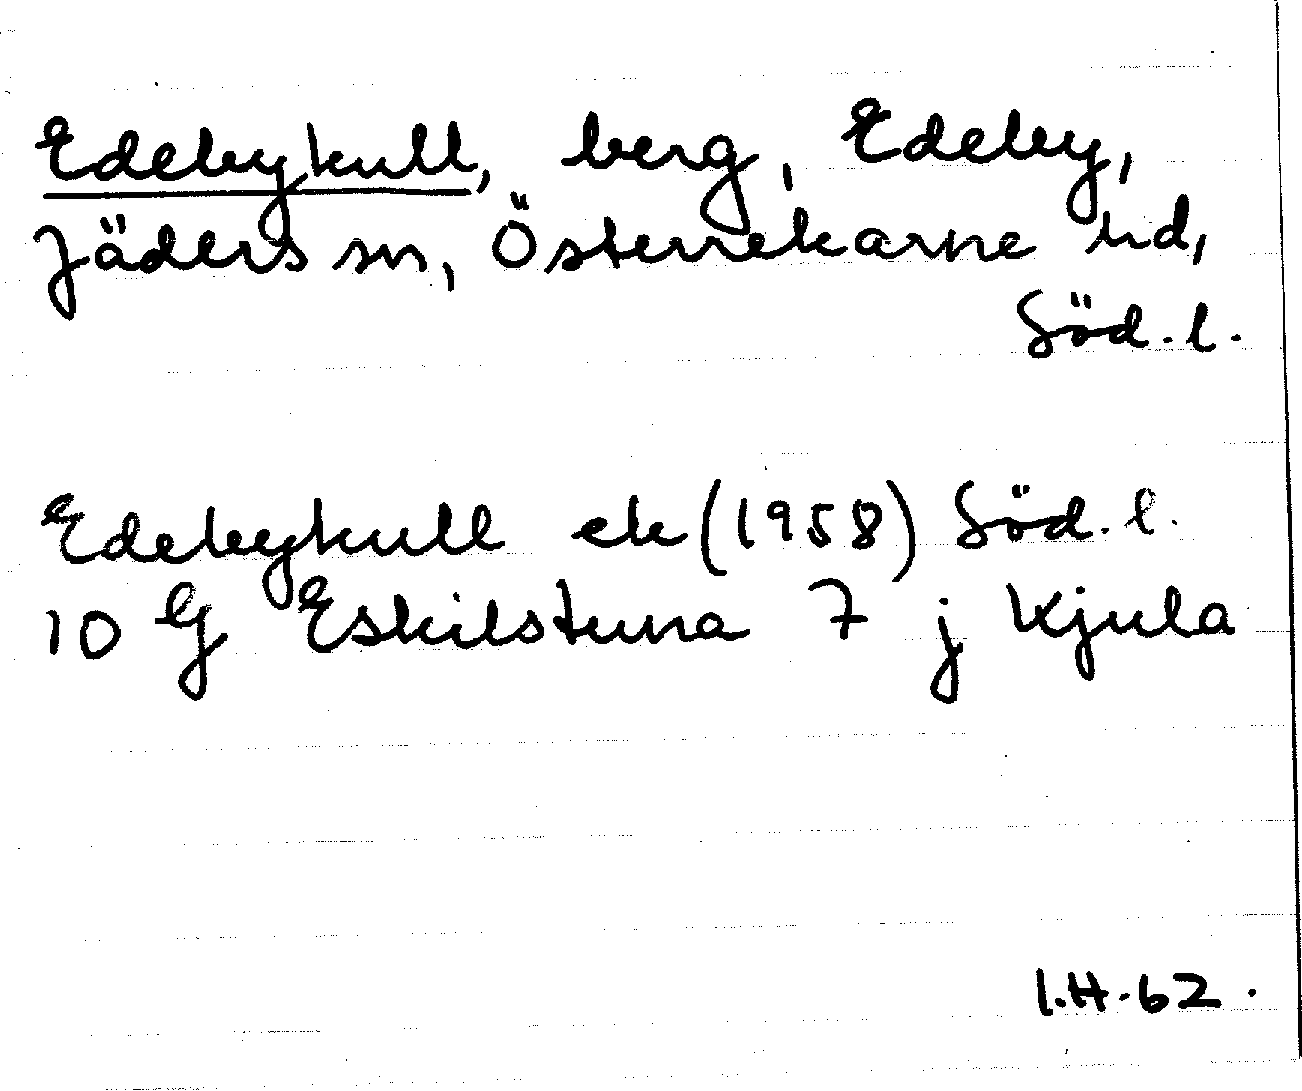 Edebykull, berg, Edeby,
Jäders sn, Österrekarne hd,
Söd. l.
Edebykull ek (1958) Söd. l.
10 G Eskilstuna 7 j Kjula
I.H. 62.